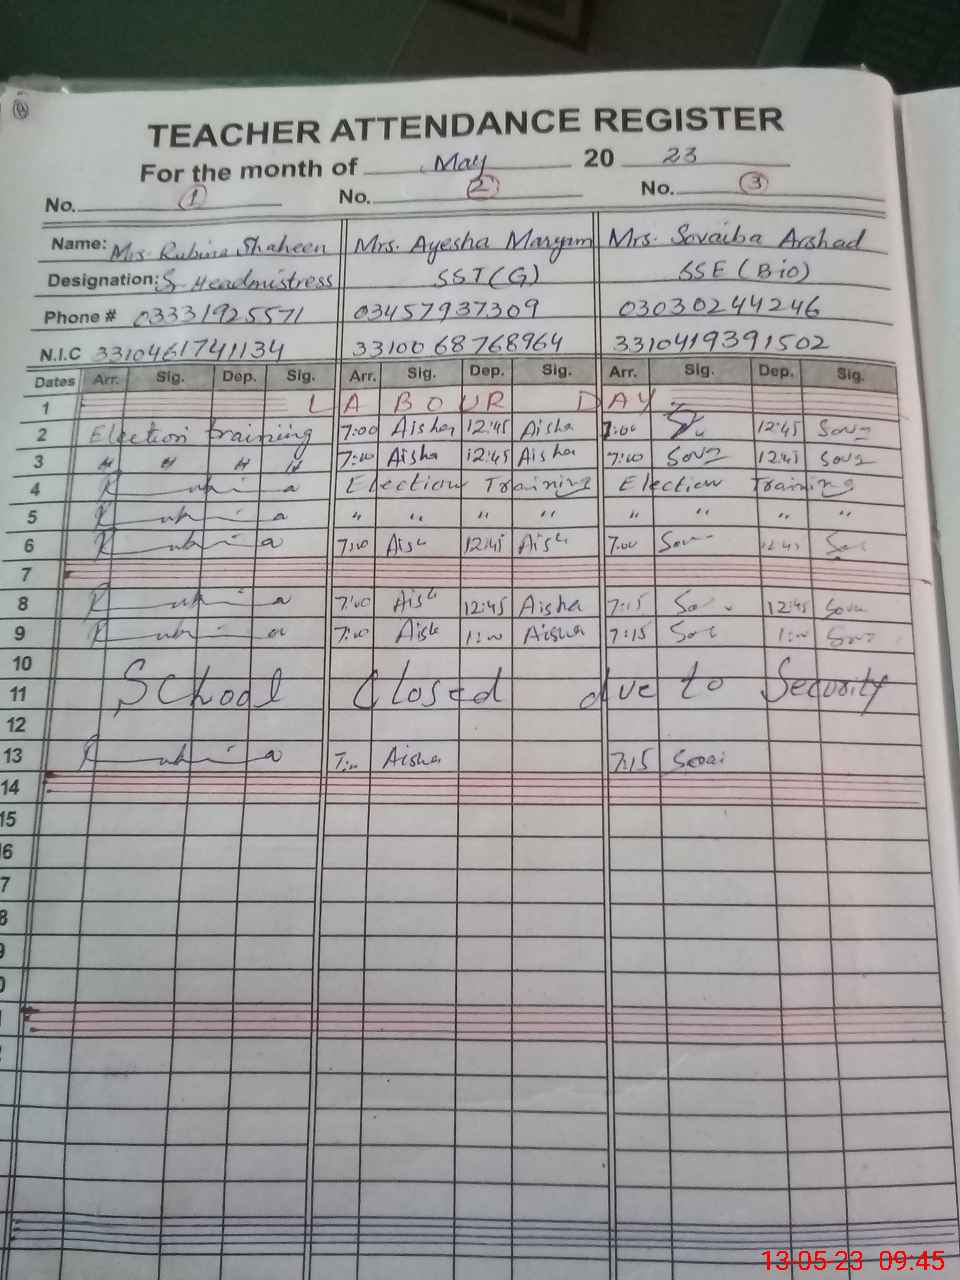 TEACHER ATTENDANCE REGISTER
For the month of May 20 23
No. 1 No. 2 No. 3
Name: Mrs. Rubina Shaheen Mrs. Ayesha Maryam Mrs. Sovaiba Arshad
Designation: S. Headmistress SST(G) SSE (Bio)
Phone # 03331925571 03457937309 03030244246
N.I.C 3310461741134 33100 68768964 3310419391502
Dates Arr. Sig. Dep. Sig. Arr. Sig. Dep. Sig. Arr. Sig. Dep. Sig.
1 LABOUR DAY
2 Election training 7:00 Aisha 12:45 Aisha 7:00 12:45
3 " " " " 7:00 Aisha 12:45 Aisha 7:00 12:45
4 Election Training Election Training
5 " " " " " " " "
6 7:00 12:45 7:00 12:45
7
8 7:00 12:45 Aisha 7:15 12:45
9 7:00 1:00 Aisha 7:15 1:00
10
11 School Closed due to Security
12
13 7:00 Aisha 7:15
14
15
13-05-23 09:45